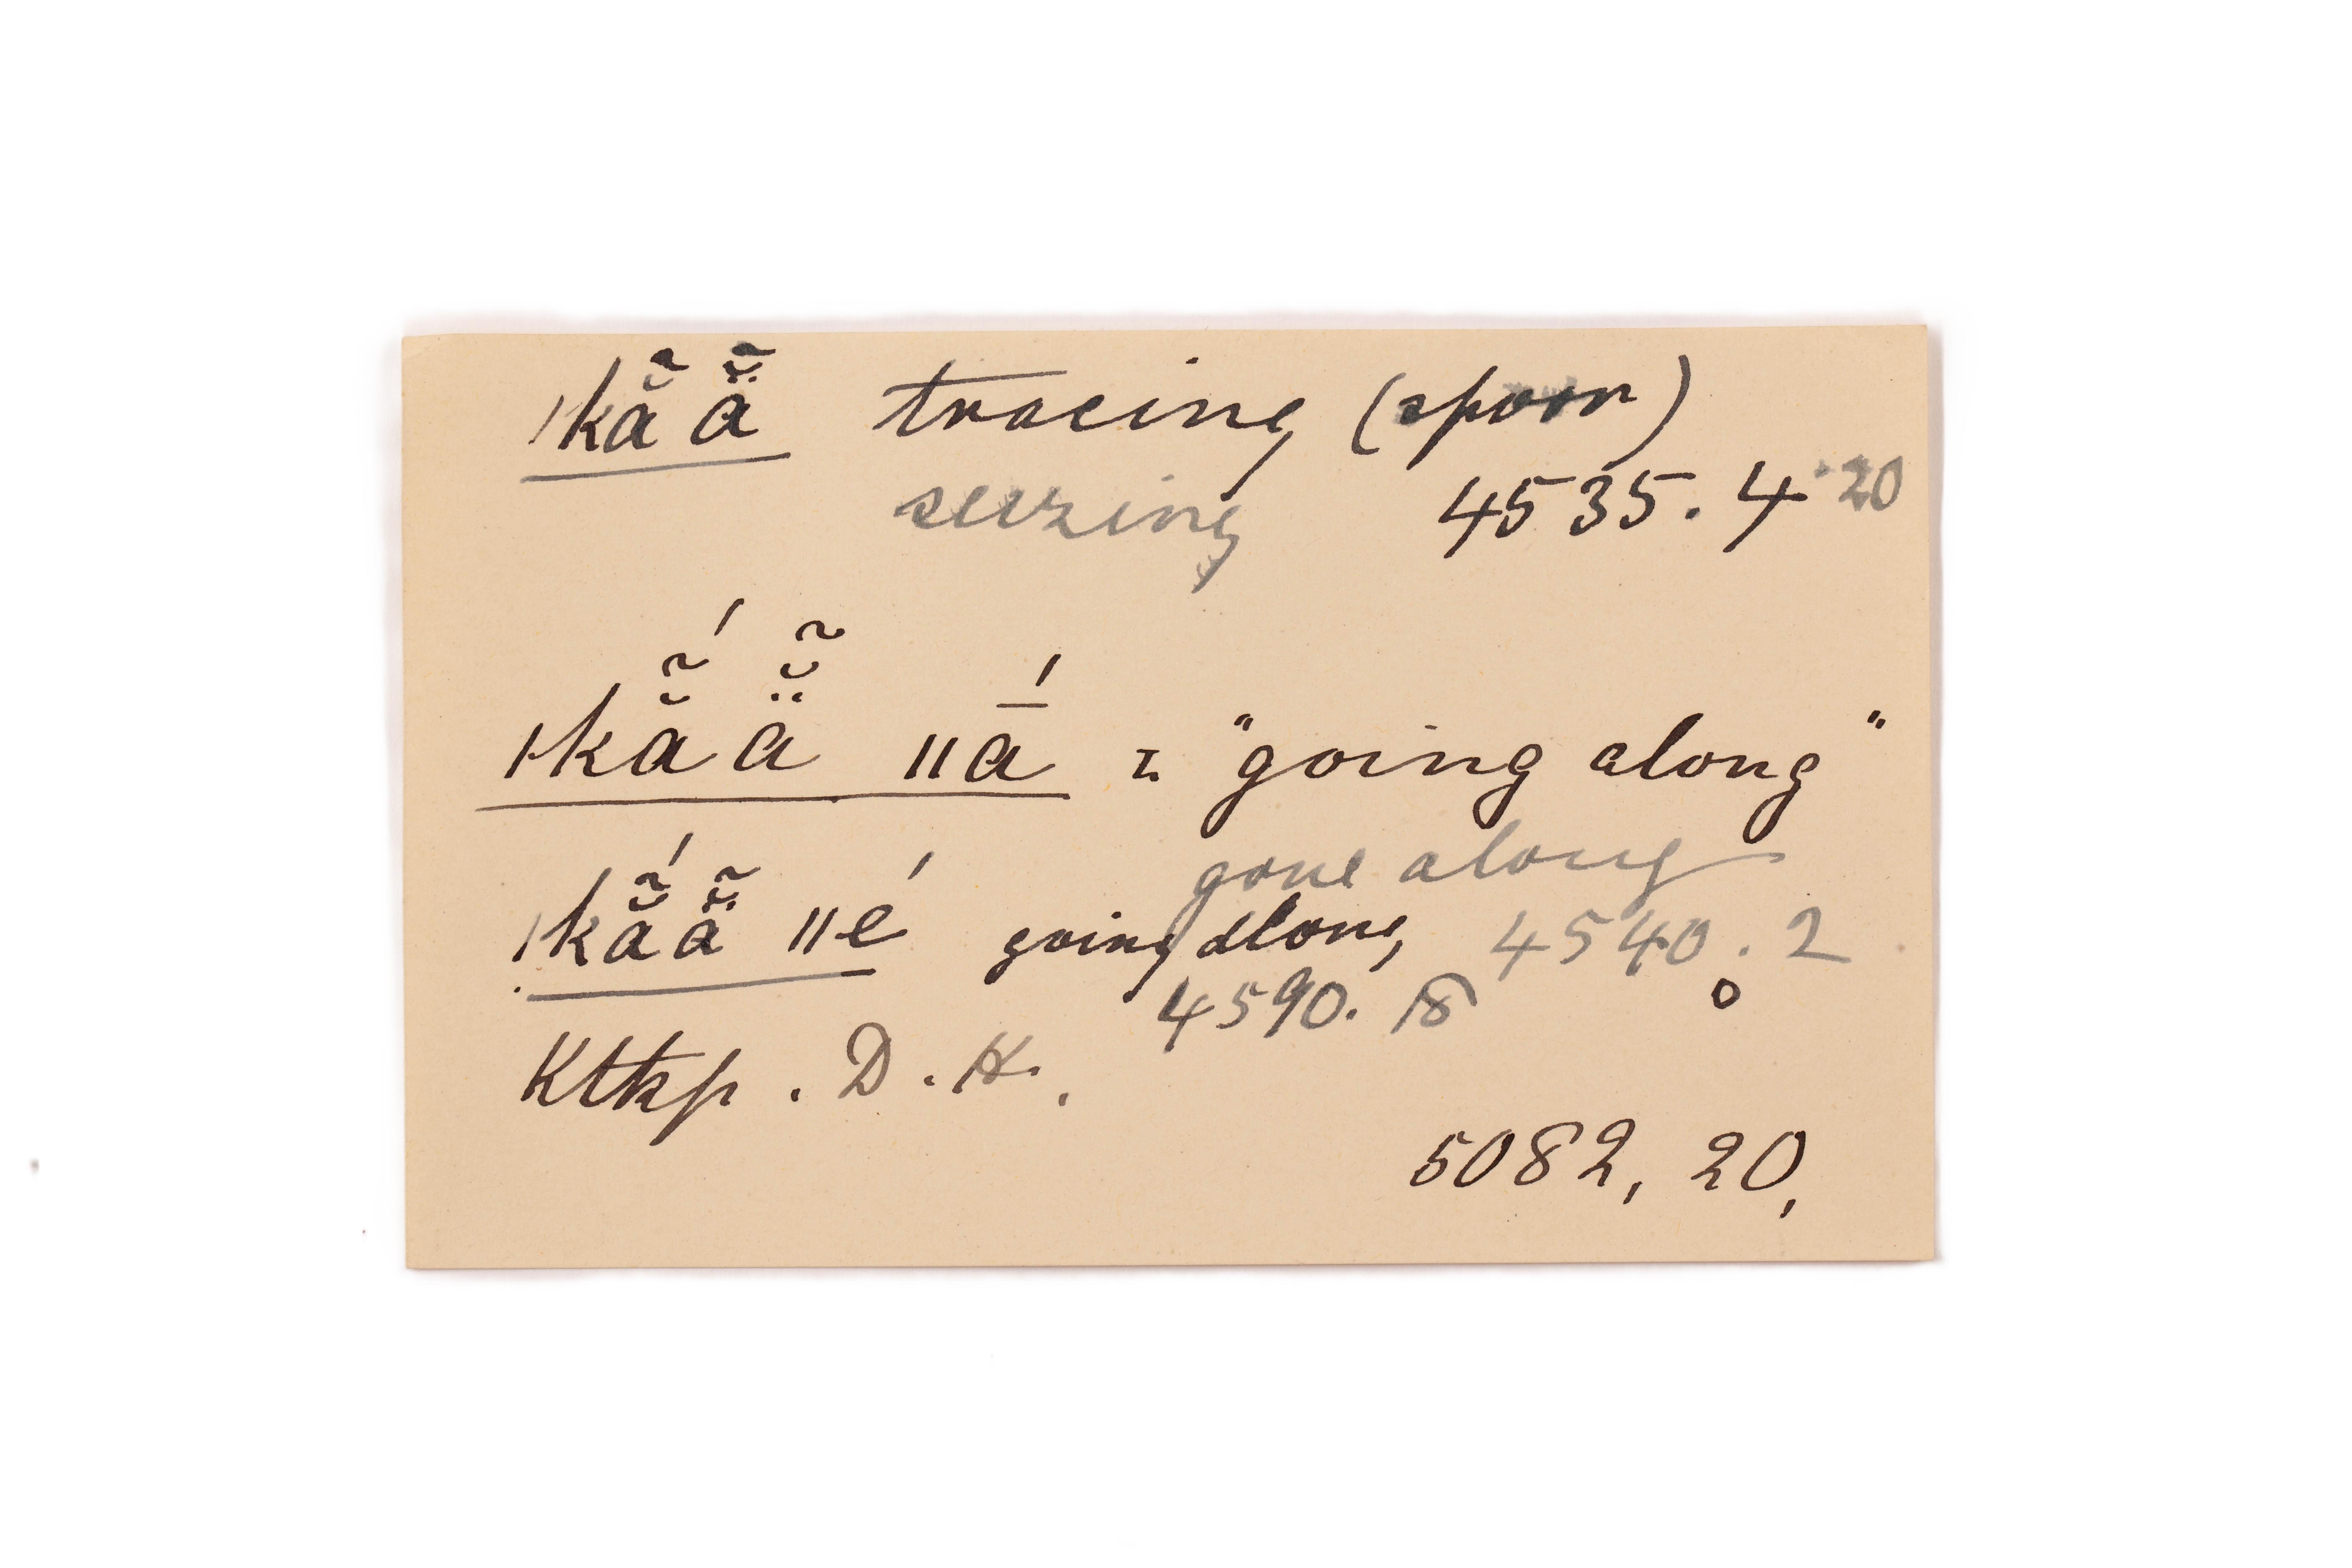 |kã̆ ã̤̆ tracing (spoor)
seizing 4535. 4 . 20
|kã̆́ ä̆̃ ||ā́ = "going along"
gone along
|kã̆́ ä̆̃ ||é going along, 4540. 2
4590. 18
Ktkp. D. H.
5082, 20,